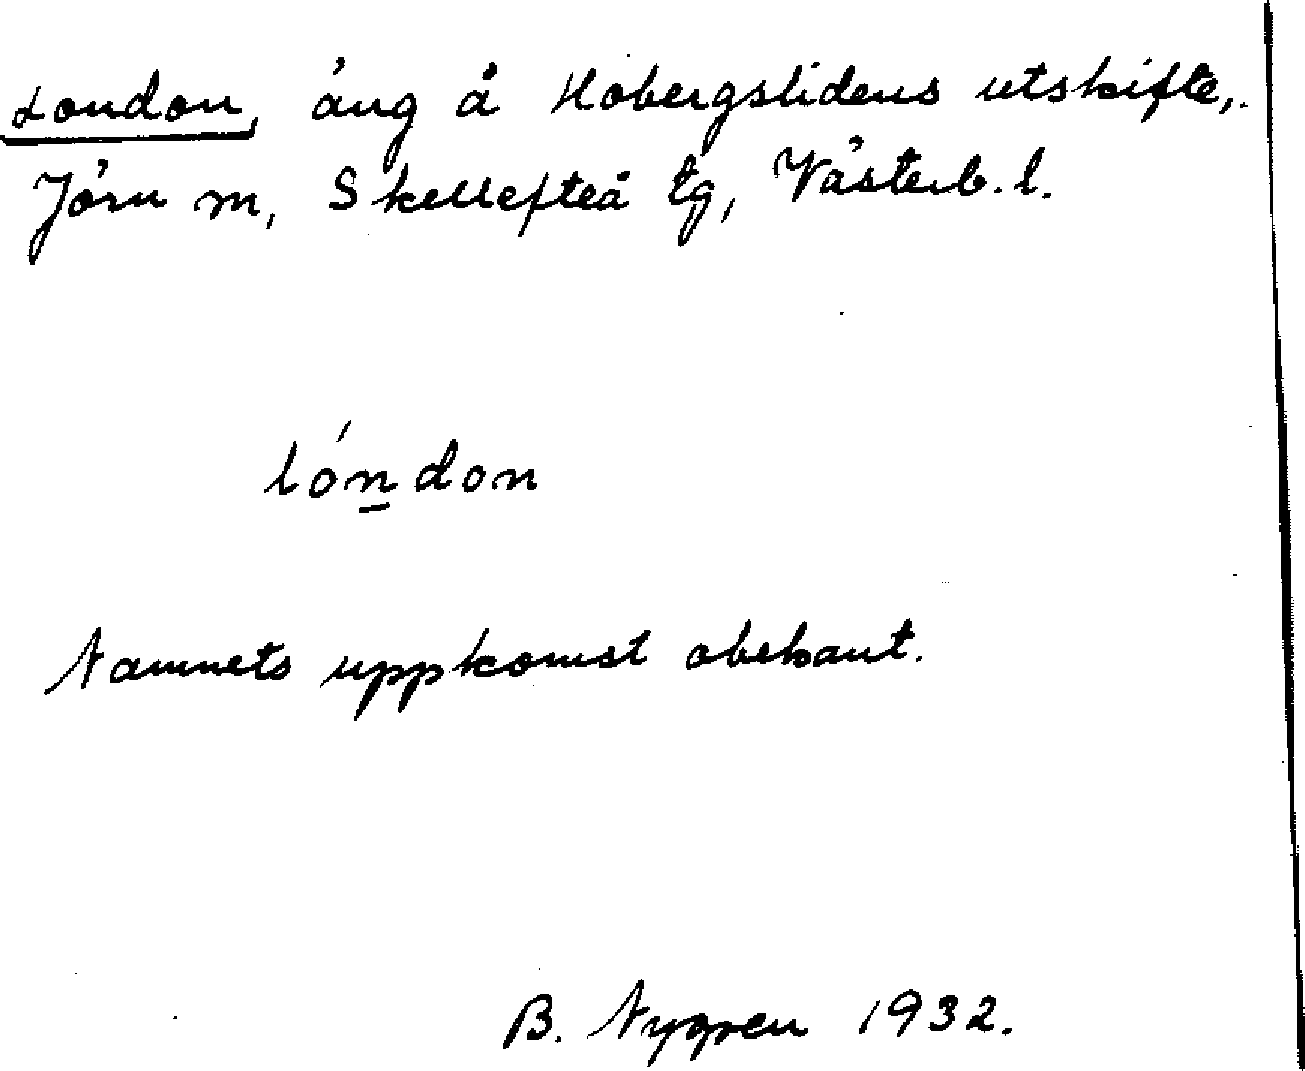 London, äng å Hobergslidens utskifte,
Jörn m, Skellefteå tg, Västerb. l.
lón̲don
Namnets uppkomst obekant.
B. Nygren 1932.